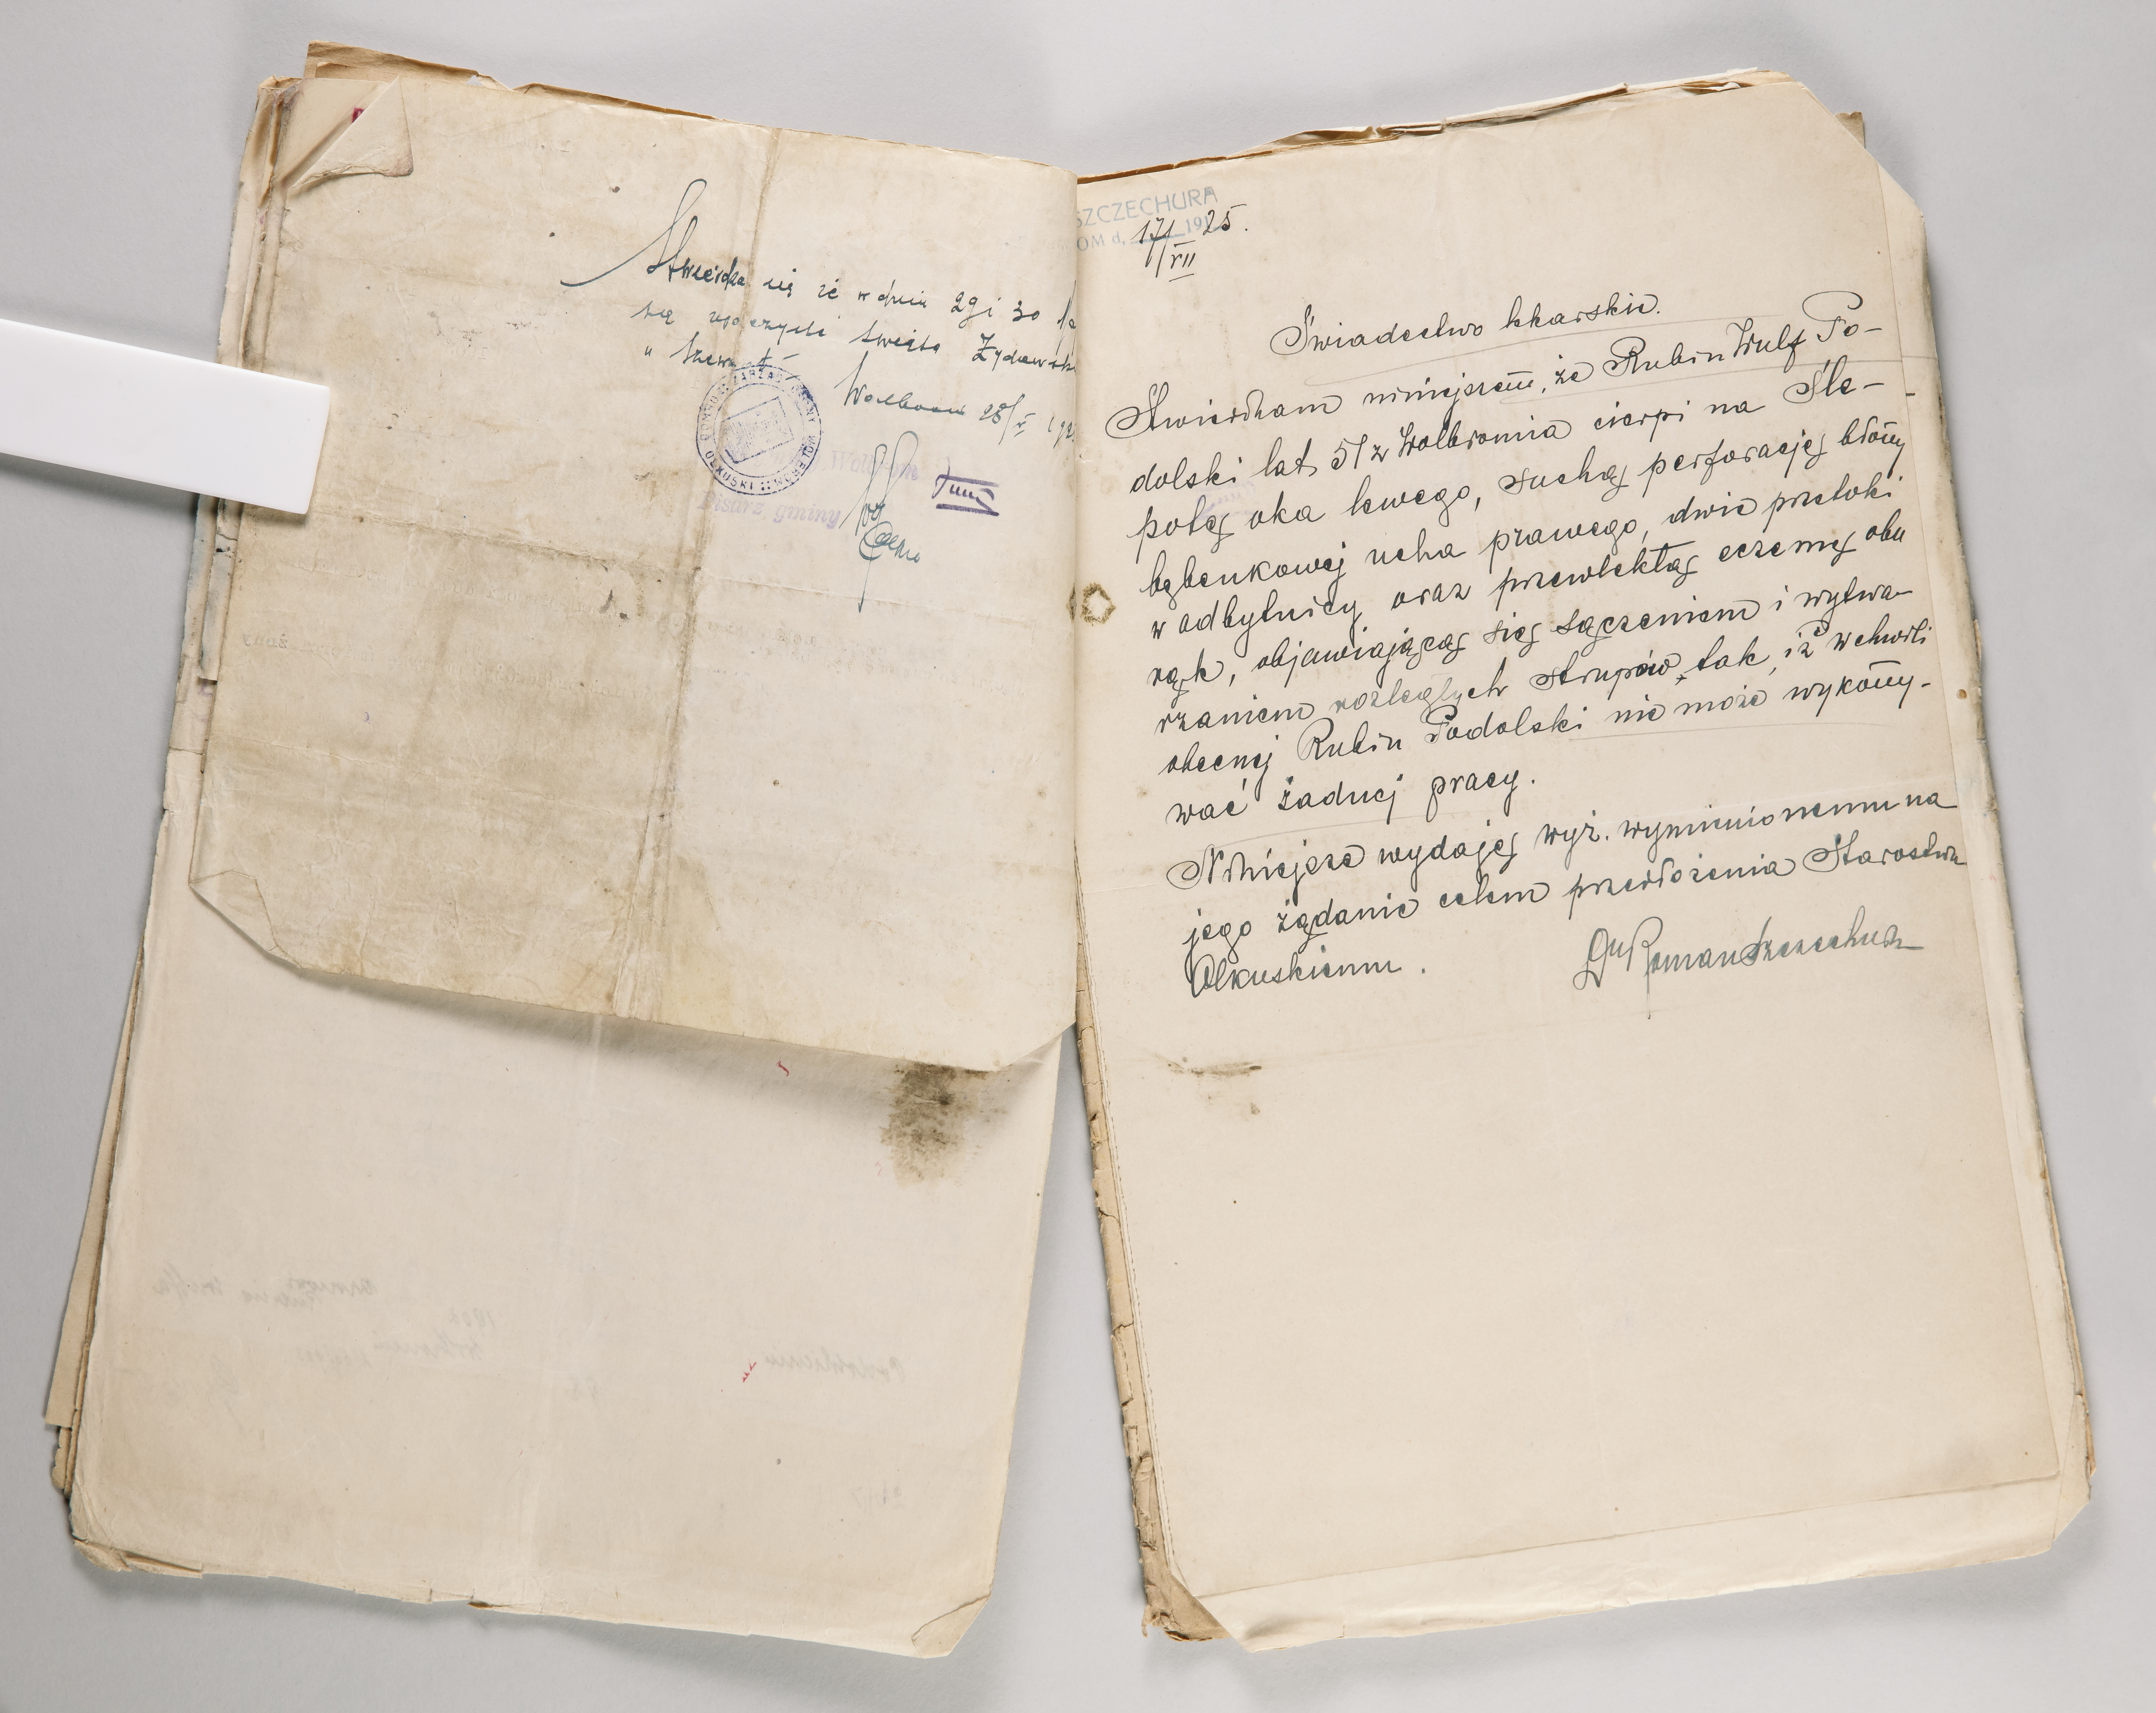 Stwierdza się że w dniu 29 i 30
są uroczyste święta
Wolbrom 28/V
Wolbrom
Pisarz gminy
SZCZECHURA
OM d. 17/VII 1925.
Świadectwo lekarskie.
Stwierdzam niniejszem, że Rubin Wulf Po-
dolski lat 51 z Wolbromia cierpi na Śle-
potę oka lewego, suchą perforację błony
bębenkowej ucha prawego, dwie przetoki
w odbytnicy oraz przewlekłą eczemę obu
rąk, objawiającą się sączeniem i wytwa-
rzaniem rozległych strupów, tak, iż w chwili
obecnej Rubin Podolski nie może wykony-
wać żadnej pracy.
Niniejsze wydaję wyż. wymienionemu na
jego żądanie celem przedłożenia Starostwu
Olkuskiemu.
Dr Roman Szczechura